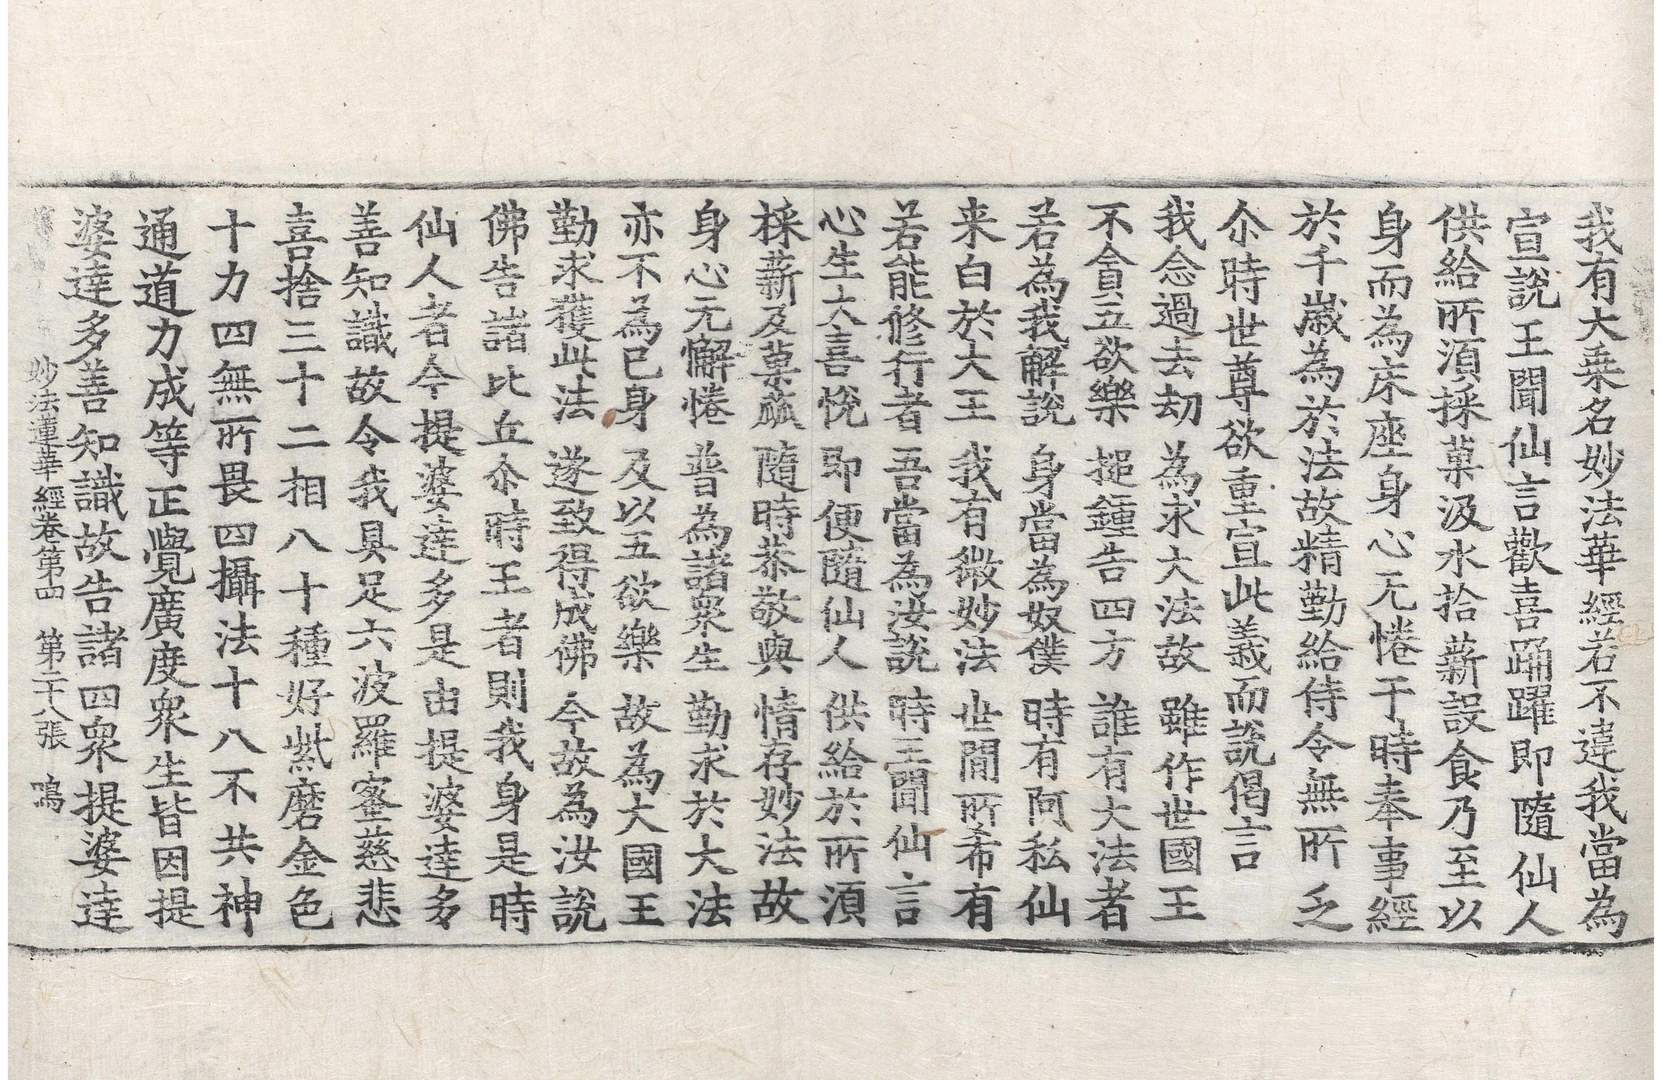 我有大乗名妙法華經若不違我當為
宣說王聞仙言歡喜踊躍即隨仙人
供給所湏採菓汲水拾薪設食乃至以
身而為床座身心无惓于時奉事經
於千歲為於法故精勤給侍令無所乏
尒時世尊欲重宣此義而說偈言
我念過去劫 為求大法故 雖作世國王
不貪五欲樂 搥鍾告四方 誰有大法者
若為我解說 身當為奴僕 時有阿私仙
来白於大王 我有微妙法 世間所希有
若能修行者 吾當為汝說 時王聞仙言
心生大喜悅 即便隨仙人 供給於所湏
採薪及菓蓏 隨時恭敬與 情存妙法故
身心无懈惓 普為諸衆生 勤求於大法
亦不為已身 及以五欲樂 故為大國王
勤求獲此法 遂致得成佛 今故為汝說
佛告諸比丘尒時王者則我身是時
仙人者今提婆達多是由提婆達多
善知識故令我具足六波羅蜜慈悲
喜捨三十二相八十種好紫磨金色
十力四無所畏四攝法十八不共神
通道力成等正覺廣度衆生皆因提
婆達多善知識故告諸四衆提婆達
妙法蓮華經卷第四 第二十八張 鳴